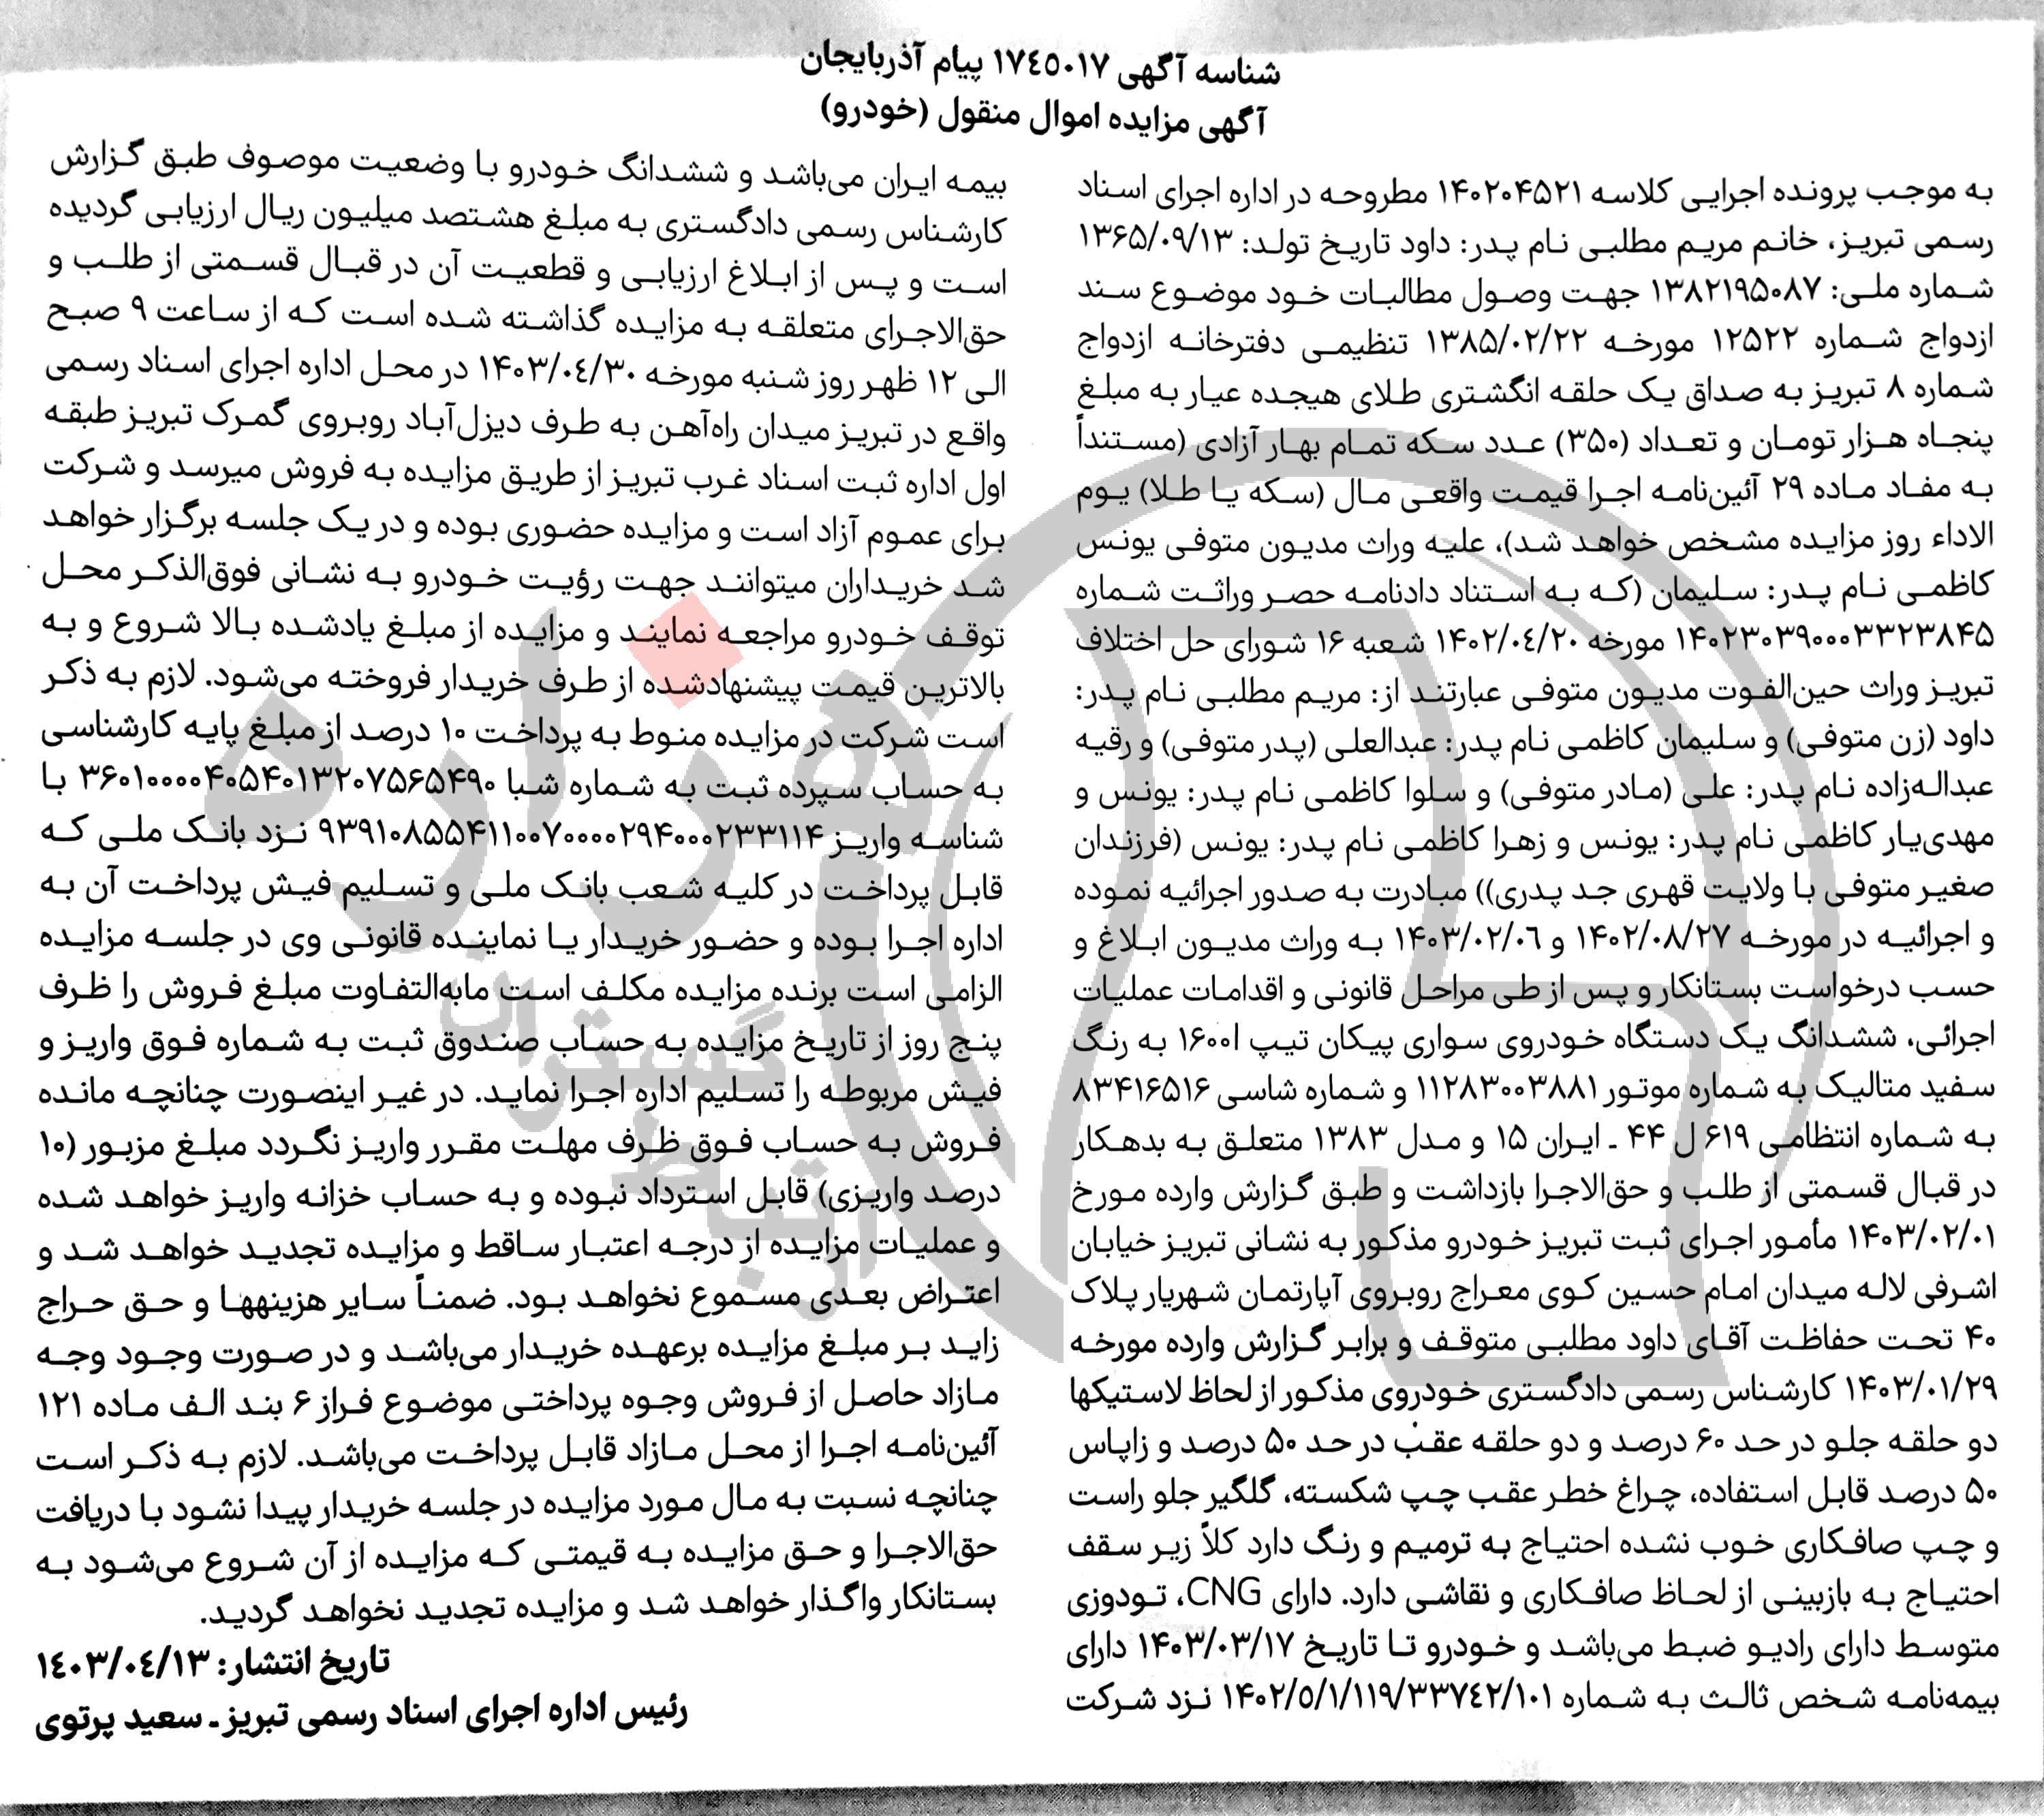 شناسه آگهی ۱۷٤٥۰۱۷ پیام آذربایجان
آگهی مزایده اموال منقول (خودرو)
به موجب پرونده اجرایی کلاسه ۱۴۰۲۰۴۵۲۱ مطروحه در اداره اجرای اسناد
رسمی تبریز، خانم مریم مطلبی نام پدر: داود تاریخ تولد: ۱۳۶۵/۰۹/۱۳
شماره ملی: ۱۳۸۲۱۹۵۰۸۷ جهت وصول مطالبات خود موضوع سند
ازدواج شماره ۱۲۵۲۲ مورخه ۱۳۸۵/۰۲/۲۲ تنظیمی دفترخانه ازدواج
شماره ۸ تبریز به صداق یک حلقه انگشتری طلای هیجده عیار به مبلغ
پنجاه هزار تومان و تعداد (۳۵۰) عدد سکه تمام بهار آزادی (مستنداً
به مفاد ماده ۲۹ آئین‌نامه اجرا قیمت واقعی مال (سکه یا طلا) یوم
الاداء روز مزایده مشخص خواهد شد)، علیه وراث مدیون متوفی یونس
کاظمی نام پدر: سلیمان (که به استناد دادنامه حصر وراثت شماره
۱۴۰۲۳۰۳۹۰۰۰۳۳۲۳۸۴۵ مورخه ۱۴۰۲/۰٤/۲۰ شعبه ۱۶ شورای حل اختلاف
تبریز وراث حین‌الفوت مدیون متوفی عبارتند از: مریم مطلبی نام پدر:
داود (زن متوفی) و سلیمان کاظمی نام پدر: عبدالعلی (پدر متوفی) و رقیه
عبداله‌زاده نام پدر: علی (مادر متوفی) و سلوا کاظمی نام پدر: یونس و
مهدی‌یار کاظمی نام پدر: یونس و زهرا کاظمی نام پدر: یونس (فرزندان
صغیر متوفی با ولایت قهری جد پدری)) مبادرت به صدور اجرائیه نموده
و اجرائیه در مورخه ۱۴۰۲/۰۸/۲۷ و ۱۴۰۳/۰۲/۰٦ به وراث مدیون ابلاغ و
حسب درخواست بستانکار و پس از طی مراحل قانونی و اقدامات عملیات
اجرائی، ششدانگ یک دستگاه خودروی سواری پیکان تیپ ۱۶۰۰I به رنگ
سفید متالیک به شماره موتور ۱۱۲۸۳۰۰۳۸۸۱ و شماره شاسی ۸۳۴۱۶۵۱۶
به شماره انتظامی ۶۱۹ ل ۴۴ ـ ایران ۱۵ و مدل ۱۳۸۳ متعلق به بدهکار
در قبال قسمتی از طلب و حق‌الاجرا بازداشت و طبق گزارش وارده مورخ
۱۴۰۳/۰۲/۰۱ مأمور اجرای ثبت تبریز خودرو مذکور به نشانی تبریز خیابان
اشرفی لاله میدان امام حسین کوی معراج روبروی آپارتمان شهریار پلاک
۴۰ تحت حفاظت آقای داود مطلبی متوقف و برابر گزارش وارده مورخه
۱۴۰۳/۰۱/۲۹ کارشناس رسمی دادگستری خودروی مذکور از لحاظ لاستیکها
دو حلقه جلو در حد ۶۰ درصد و دو حلقه عقب در حد ۵۰ درصد و زاپاس
۵۰ درصد قابل استفاده، چراغ خطر عقب چپ شکسته، گلگیر جلو راست
و چپ صافکاری خوب نشده احتیاج به ترمیم و رنگ دارد کلاً زیر سقف
احتیاج به بازبینی از لحاظ صافکاری و نقاشی دارد. دارای CNG، تودوزی
متوسط دارای رادیو ضبط می‌باشد و خودرو تا تاریخ ۱۴۰۳/۰۳/۱۷ دارای
بیمه‌نامه شخص ثالث به شماره ۱۴۰۲/۵/۱/۱۱۹/۳۳۷٤۲/۱۰۱ نزد شرکت
بیمه ایران می‌باشد و ششدانگ خودرو با وضعیت موصوف طبق گزارش
کارشناس رسمی دادگستری به مبلغ هشتصد میلیون ریال ارزیابی گردیده
است و پس از ابلاغ ارزیابی و قطعیت آن در قبال قسمتی از طلب و
حق‌الاجرای متعلقه به مزایده گذاشته شده است که از ساعت ۹ صبح
الی ۱۲ ظهر روز شنبه مورخه ۱۴۰۳/۰٤/۳۰ در محل اداره اجرای اسناد رسمی
واقع در تبریز میدان راه‌آهن به طرف دیزل‌آباد روبروی گمرک تبریز طبقه
اول اداره ثبت اسناد غرب تبریز از طریق مزایده به فروش میرسد و شرکت
برای عموم آزاد است و مزایده حضوری بوده و در یک جلسه برگزار خواهد
شد خریداران میتوانند جهت رؤیت خودرو به نشانی فوق‌الذکر محل
توقف خودرو مراجعه نمایند و مزایده از مبلغ یادشده بالا شروع و به
بالاترین قیمت پیشنهادشده از طرف خریدار فروخته می‌شود. لازم به ذکر
است شرکت در مزایده منوط به پرداخت ۱۰ درصد از مبلغ پایه کارشناسی
به حساب سپرده ثبت به شماره شبا ۳۶۰۱۰۰۰۰۴۰۵۴۰۱۳۲۰۷۵۶۵۴۹۰ با
شناسه واریز ۹۳۹۱۰۸۵۵۴۱۱۰۰۷۰۰۰۰۲۹۴۰۰۰۲۳۳۱۱۴ نزد بانک ملی که
قابل پرداخت در کلیه شعب بانک ملی و تسلیم فیش پرداخت آن به
اداره اجرا بوده و حضور خریدار یا نماینده قانونی وی در جلسه مزایده
الزامی است برنده مزایده مکلف است مابه‌التفاوت مبلغ فروش را ظرف
پنج روز از تاریخ مزایده به حساب صندوق ثبت به شماره فوق واریز و
فیش مربوطه را تسلیم اداره اجرا نماید. در غیر اینصورت چنانچه مانده
فروش به حساب فوق ظرف مهلت مقرر واریز نگردد مبلغ مزبور (۱۰
درصد واریزی) قابل استرداد نبوده و به حساب خزانه واریز خواهد شده
و عملیات مزایده از درجه اعتبار ساقط و مزایده تجدید خواهد شد و
اعتراض بعدی مسموع نخواهد بود. ضمناً سایر هزینهها و حق حراج
زاید بر مبلغ مزایده برعهده خریدار می‌باشد و در صورت وجود وجه
مازاد حاصل از فروش وجوه پرداختی موضوع فراز ۶ بند الف ماده ۱۲۱
آئین‌نامه اجرا از محل مازاد قابل پرداخت می‌باشد. لازم به ذکر است
چنانچه نسبت به مال مورد مزایده در جلسه خریدار پیدا نشود با دریافت
حق‌الاجرا و حق مزایده به قیمتی که مزایده از آن شروع می‌شود به
بستانکار واگذار خواهد شد و مزایده تجدید نخواهد گردید.
تاریخ انتشار: ۱٤۰۳/۰٤/۱۳
رئیس اداره اجرای اسناد رسمی تبریز ـ سعید پرتوی
هزاره
گستران
ارتباط